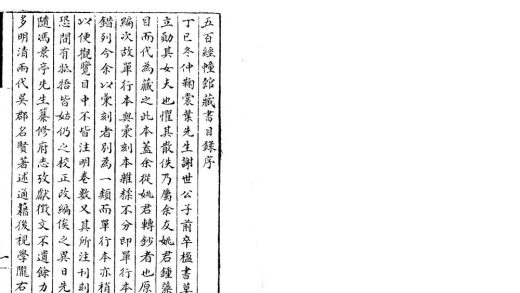 五百經幢館藏書目錄序
丁巳冬仲鞠裳葉先生謝世公子前卒楹書草
立勛其女夫也懼其散佚乃屬余友姚君鍾葇
目而代為藏之此本蓋余從姚君轉鈔者也原
編次故單行本與彙刻本雜糅不分即單行本
錯列今余以彙刻者別為一類而單行本亦稍
以便觀覽目中不皆注明卷數又其所注刊刻
恐間有牴牾皆姑仍之校正改編俟之異日先
隨馮景亭先生纂修府志攷獻徵文不遺餘力
多明清兩代吳郡名賢著述通籍後視學隴右
一